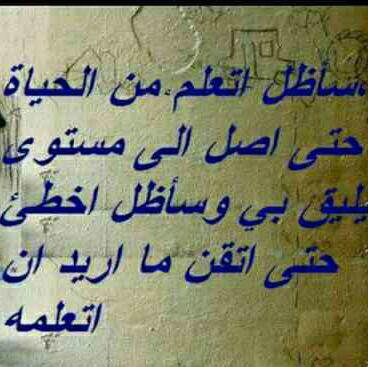 سأظل اتعلم من الحياة
حتى اصل الى مستوى
يليق بي وسأظل اخطئ
حتى اتقن ما اريد ان
اتعلمه